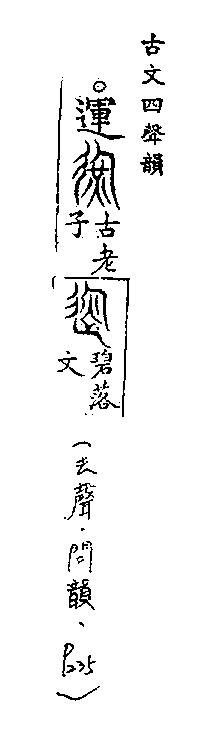 古文四聲韻
。運
古老子
碧落文
(去聲·問韻、P235)